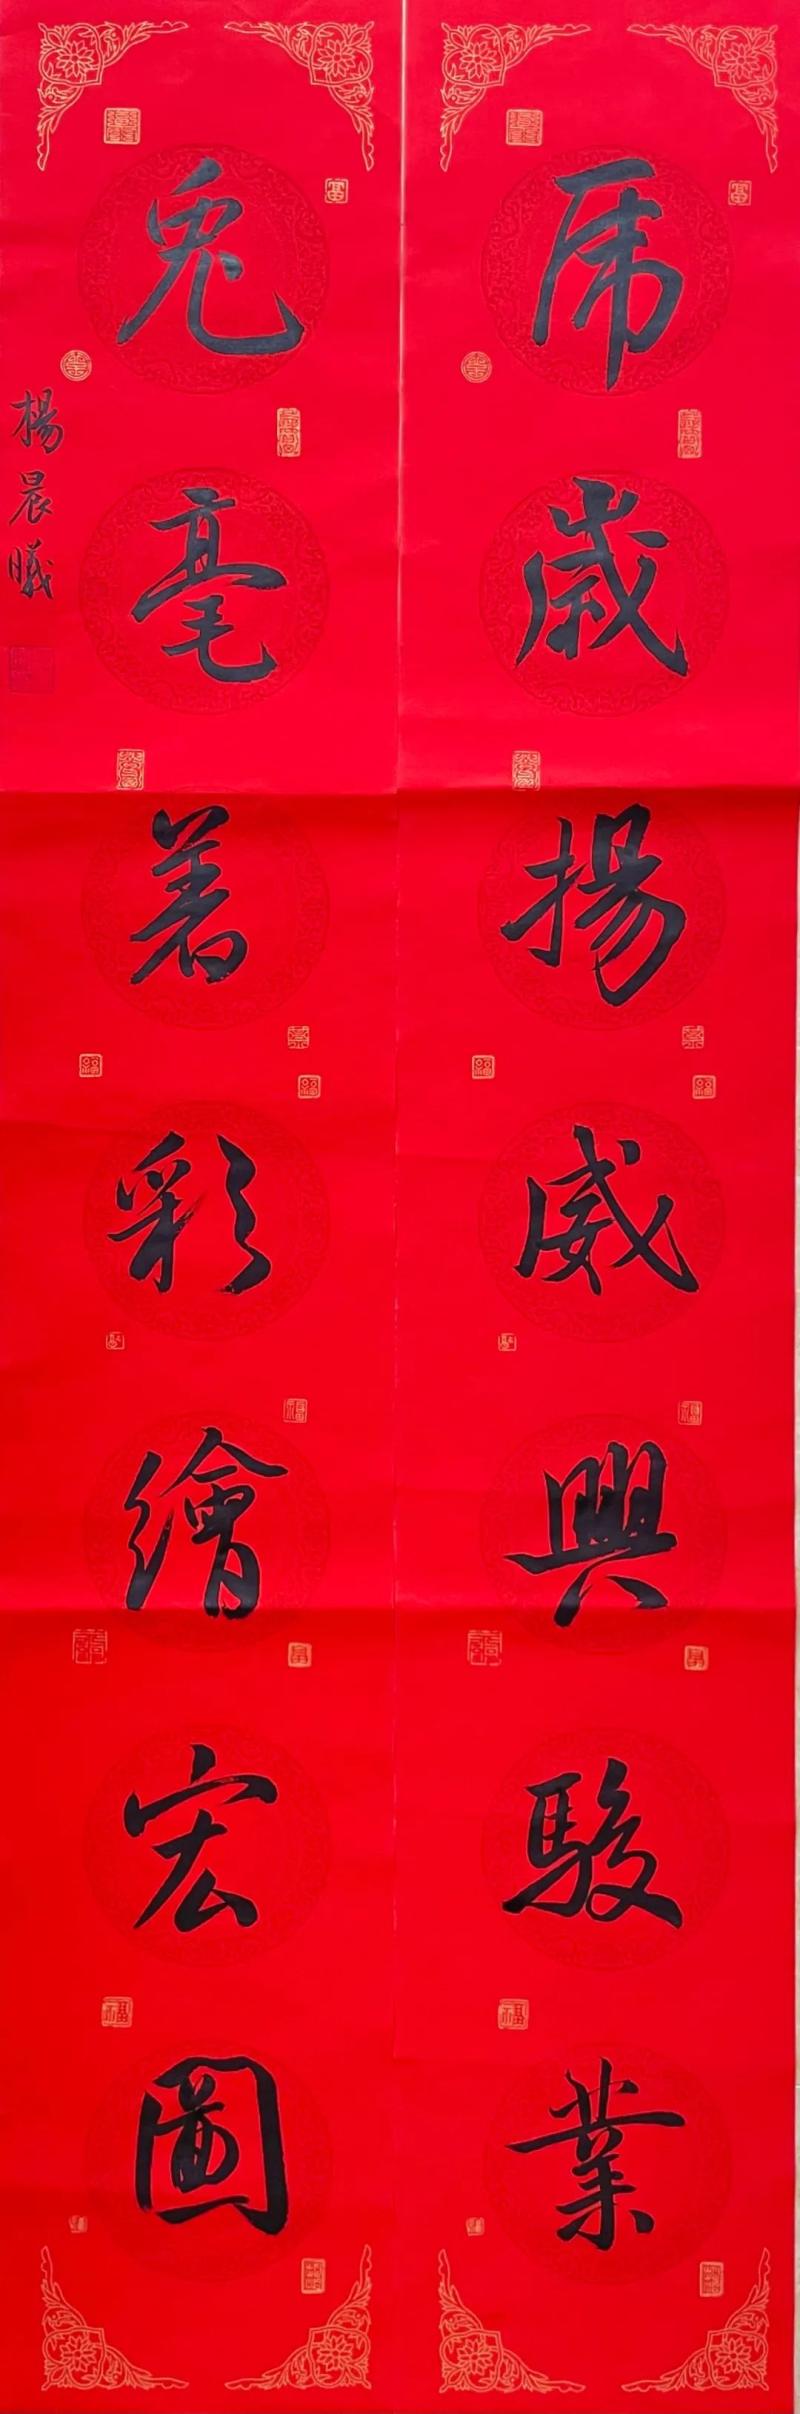 虎歲揚威興駿業
兔毫着彩繪宏圖
楊晨曦